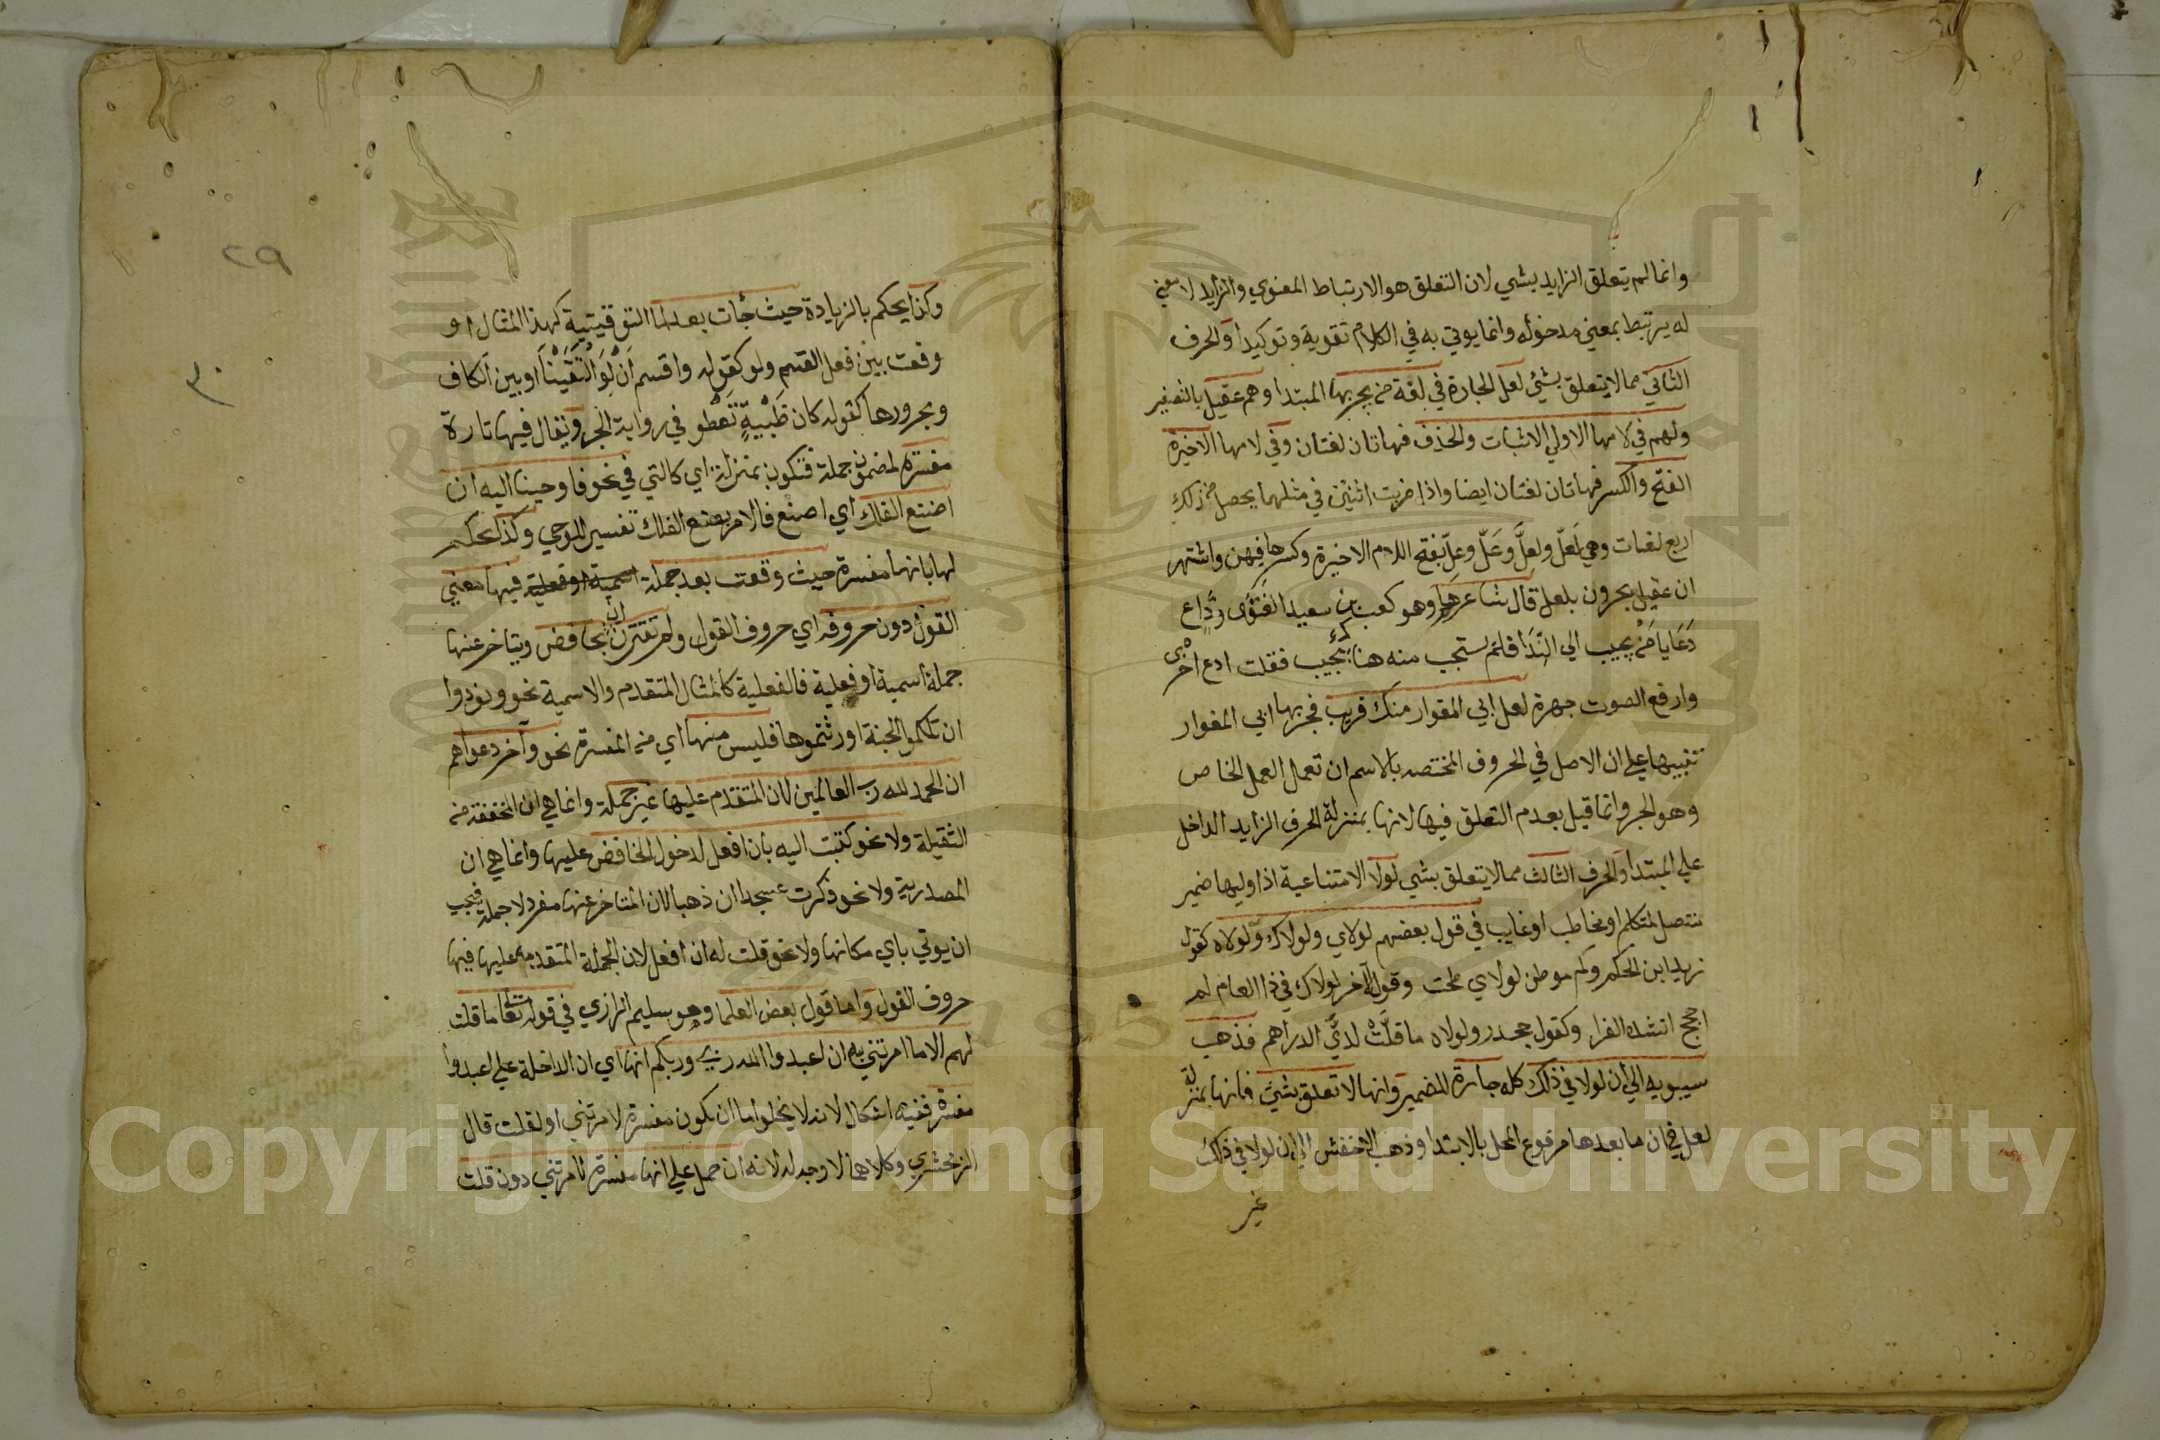 وانما لم يتعلق الزايد بشي لان التعلق هو الارتباط المعنوي والزايد لا معني
له يرتبط بمعني مدخوله وانما يوتي به في الكلام تقوية وتوكيدا والحرف
الثاني مما لا يتعلق بشي لعل الجارة في لغة من يجر بها المبتدا وهم عقيل بالتصغير
ولهم في لامها الاولي الاثبات والحذف فهاتان لغتان وفي لامها الاخيرة
الفتح والكسر فهاتان لغتان ايضا واذا ضربت اثنتين في مثلهما يحصل من ذلك
اربع لغات وهي لَعَلَّ ولعلِّ وعَلَّ وعلِّ بفتح اللام الاخيرة وكسرها فيهن واشتهر
ان عقيل يجرون بلعل قال شاعرهم وهو كعب بن سعيد الغنوي ودَاعٍ
دَعَا يا مَنْ يجيب الي النّدَا فلم يستجب منه هناك مجيب فقلت ادع اخري
وارفع الصوت جهرة لعل ابي المغوار منك قريب فجر بها ابي المغوار
تنبيها علي ان الاصل في الحروف المختصه بالاسم ان تعمل العمل الخاص
وهو الجر وانما قيل بعدم التعلق فيها لانها بمنزلة الحرف الزايد الداخل
علي المبتدا والحرف الثالث مما لا يتعلق بشي لولا الامتناعية اذا وليها ضمير
متصل لمتكلم او مخاطب او غايب في قول بعضهم لولاي ولولاك ولولاه كقول
زيد ابن الحكم وكم موطن لولاي طحت وقول الآخر لولاك في ذا العام لم
احجج انشده الفرا وكقول جحدر ولولاه ما قلَّتْ لديَّ الدراهم فذهب
سيبويه الي أن لولا في ذلك كله جارة للضمير وانها لا تعلق بشي فانها بمنزلة
لعل في ان ما بعدها مرفوع المحل بالابتدا وذهب الاخفش الي ان لولا في ذلك
غير
٢٩
٣٠
وكذا يحكم بالزيادة حيث جأت بعد لما التوقيتية كهذا المثال او
وقعت بين فعل القسم ولو كقوله واقسم اَنْ لَوِ الْتَقَيْنَا او بين الكاف
ومجرورها كقوله كان ظَبْيةٍ تَعْطو في رواية الجر ويقال فيها تارة
مفسرة لمضمون جملة فتكون بمنزلة اي كالتي في نحو فاوحينا اليه ان
اصنع الفلك اي اصنع فالامر بصنع الفلك تفسير للوحي وكذا يحكم
لها بانها مفسرة حيث وقعت بعد جملة اسمية او فعلية فيها معني
القول دون حروفه اي حروف القول ولم تقترن ان بخافض ويتاخر عنها
جملة اسمية او فعلية فالفعلية كالمثال المتقدم والاسمية نحو ونودوا
ان تلكمو الجنة اورثتموها فليس منها اي من المفسرة نحو وآخر دعواهم
ان الحمد لله رب العالمين لان المتقدم عليها غير جملة وانما هي ان المخففة من
الثقيلة ولا نحو كتبت اليه بان افعل لدخول الخافض عليها وانما هي ان
المصدرية ولا نحو ذكرت عسجدا ان ذهبا لان المتاخر عنها مفرد لا جملة فيجب
ان يوتي باي مكانها ولا نحو قلت له ان افعل لان الجملة المتقدمه عليها فيها
حروف القول واما قول بعض العلما وهو سليم الرازي في قوله تعالى ما قلت
لهم الا ما امرتني به ان اعبدوا الله ربي وربكم انها اي ان الداخلة علي اعبدوا
مفسرة ففيه اشكال لانه لا يخلوا اما ان يكون مفسرة لامرتني او لقلت قال
الزمخشري وكلاهما لا وجه له لانه ان حمل علي انها مفسرة لامرتني دون قلت
Copyright © King Saud University